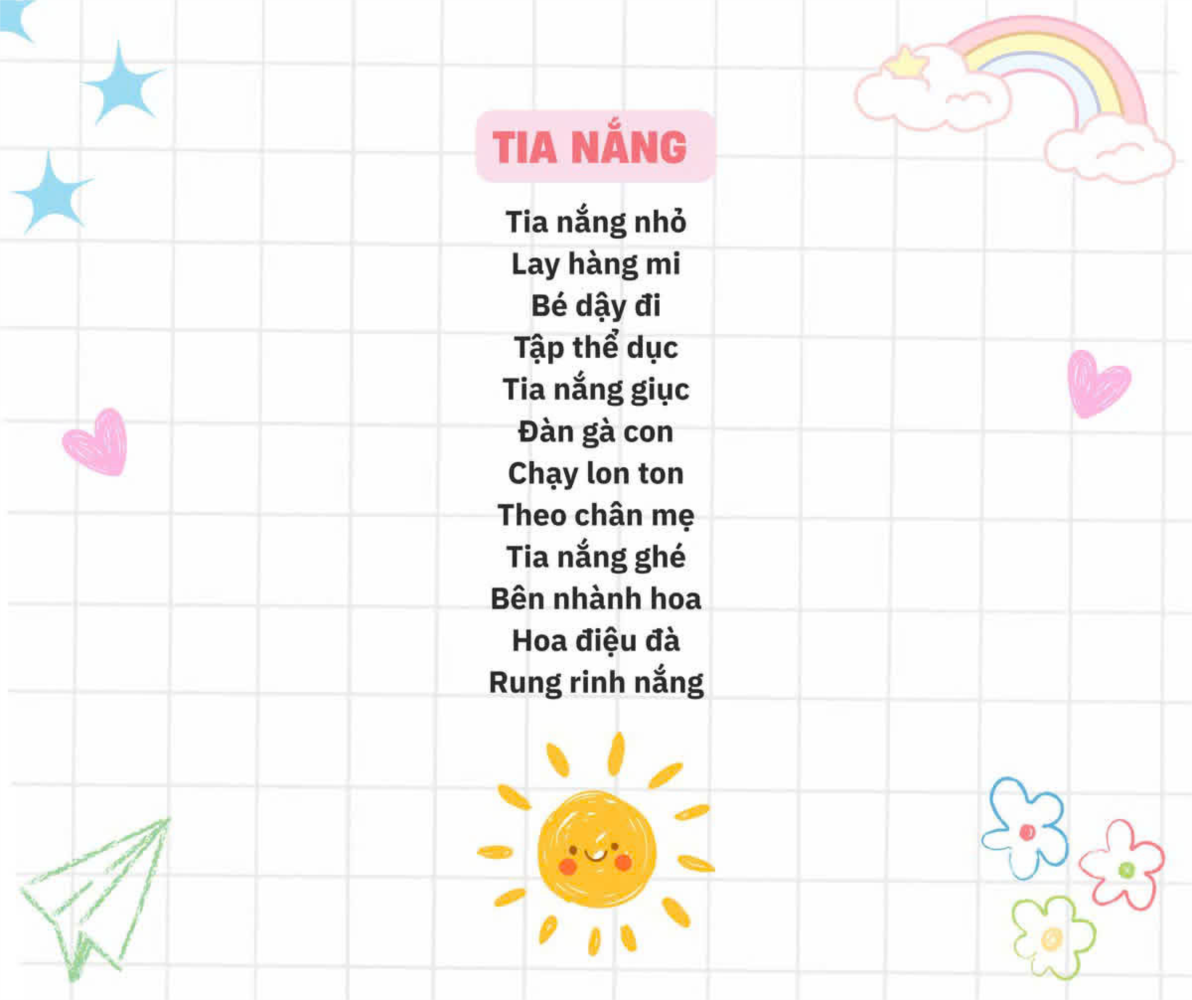 TIA NẮNG
Tia nắng nhỏ
Lay hàng mi
Bé dậy đi
Tập thể dục
Tia nắng giục
Đàn gà con
Chạy lon ton
Theo chân mẹ
Tia nắng ghé
Bên nhành hoa
Hoa điệu đà
Rung rinh nắng